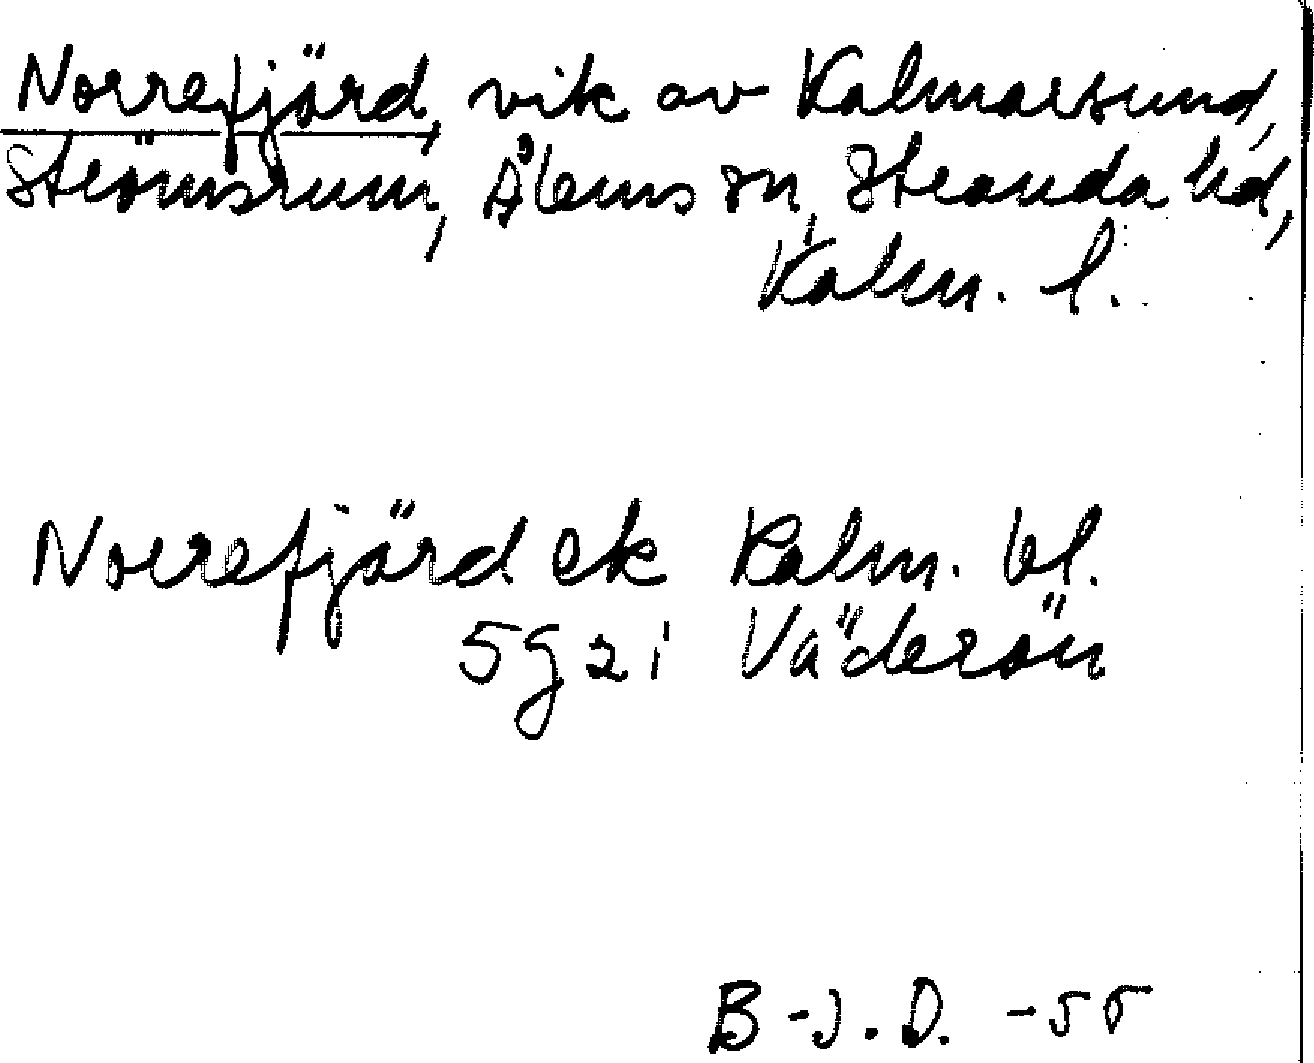 Norrefjärd, vik av Kalmarsund,
Strömsrum, Ålems sn, Stranda hd,
Kalm. l.
Norrefjärd ek Kalm. bl.
5g2i Väderön
B-J.D. -55